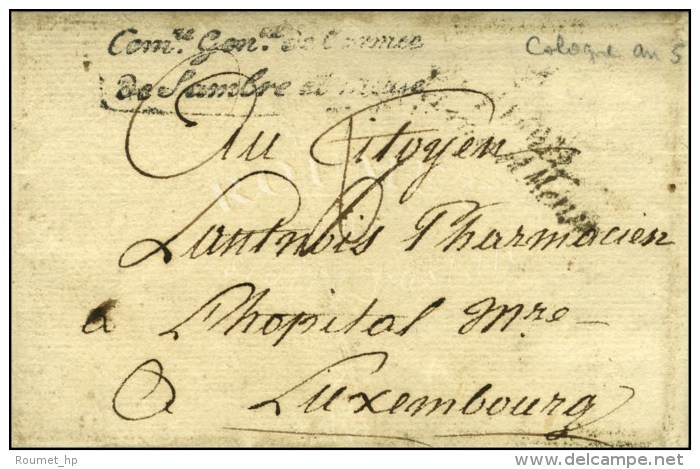 Comre. Genal. de l'armée
de Sambre et meuse
Cologne an 5
Au Citoyen
Lautnois Pharmacien
a L'hopital mre
a Luxembourg
Roumet_hp
delcampe.net